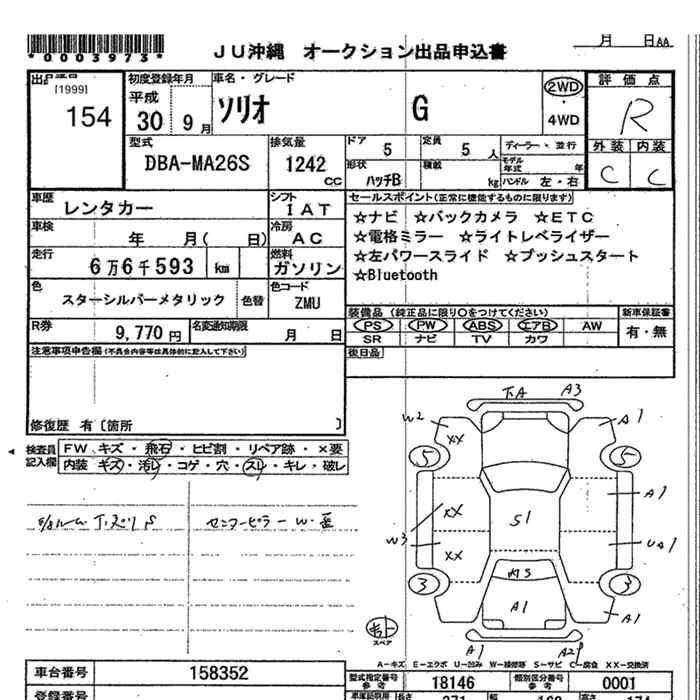 *0003973*
JU沖縄 オークション出品申込書
月 日AA
出品番号
[1999]
154
初度登録年月
平成
30 9 月
車名・グレード
ソリオ G
2WD
・
4WD
評価点
R
型式
DBA-MA26S
排気量
1242
CC
ドア
5
定員
5 人
ディーラー・並行
モデル年式 年
形状
ハッチB
積載
kg
ハンドル 左・右
外装 内装
C C
車歴
レンタカー
シフト
IAT
車検
年 月( 日)
冷房
AC
走行
6万6千593 km
燃料
ガソリン
色
スターシルバーメタリック
色替
色コード
ZMU
セールスポイント(正常に機能するものに限ります)
☆ナビ ☆バックカメラ ☆ETC
☆電格ミラー ☆ライトレベライザー
☆左パワースライド ☆プッシュスタート
☆Bluetooth
R券
9,770 円
名変通知期限
月 日
装備品 (純正品に限り○をつけてください)
PS PW ABS エアB AW
SR ナビ TV カワ
新車保証書
有・無
後日品
注意事項申告欄(不具合内容等は具体的に記入して下さい)
修復歴 有〔箇所 〕
検査員
記入欄
FW キズ・飛石・ヒビ割・リペア跡・×要
内装 キズ・汚レ・コゲ・穴・スレ・キレ・破レ
センターピラー W・歪
下A A3
W2 A1
XX
5 5
XX A1
S1
W3 UA1
XX
3 3
A1
A1
スペア
A1
A-キズ E-エクボ U-凹み W-補修跡 S-サビ C-腐食 XX-交換済
車台番号
158352
型式指定番号
参考
18146
類別区分番号
参考
0001
登録番号
長さ
371
幅
高さ
174